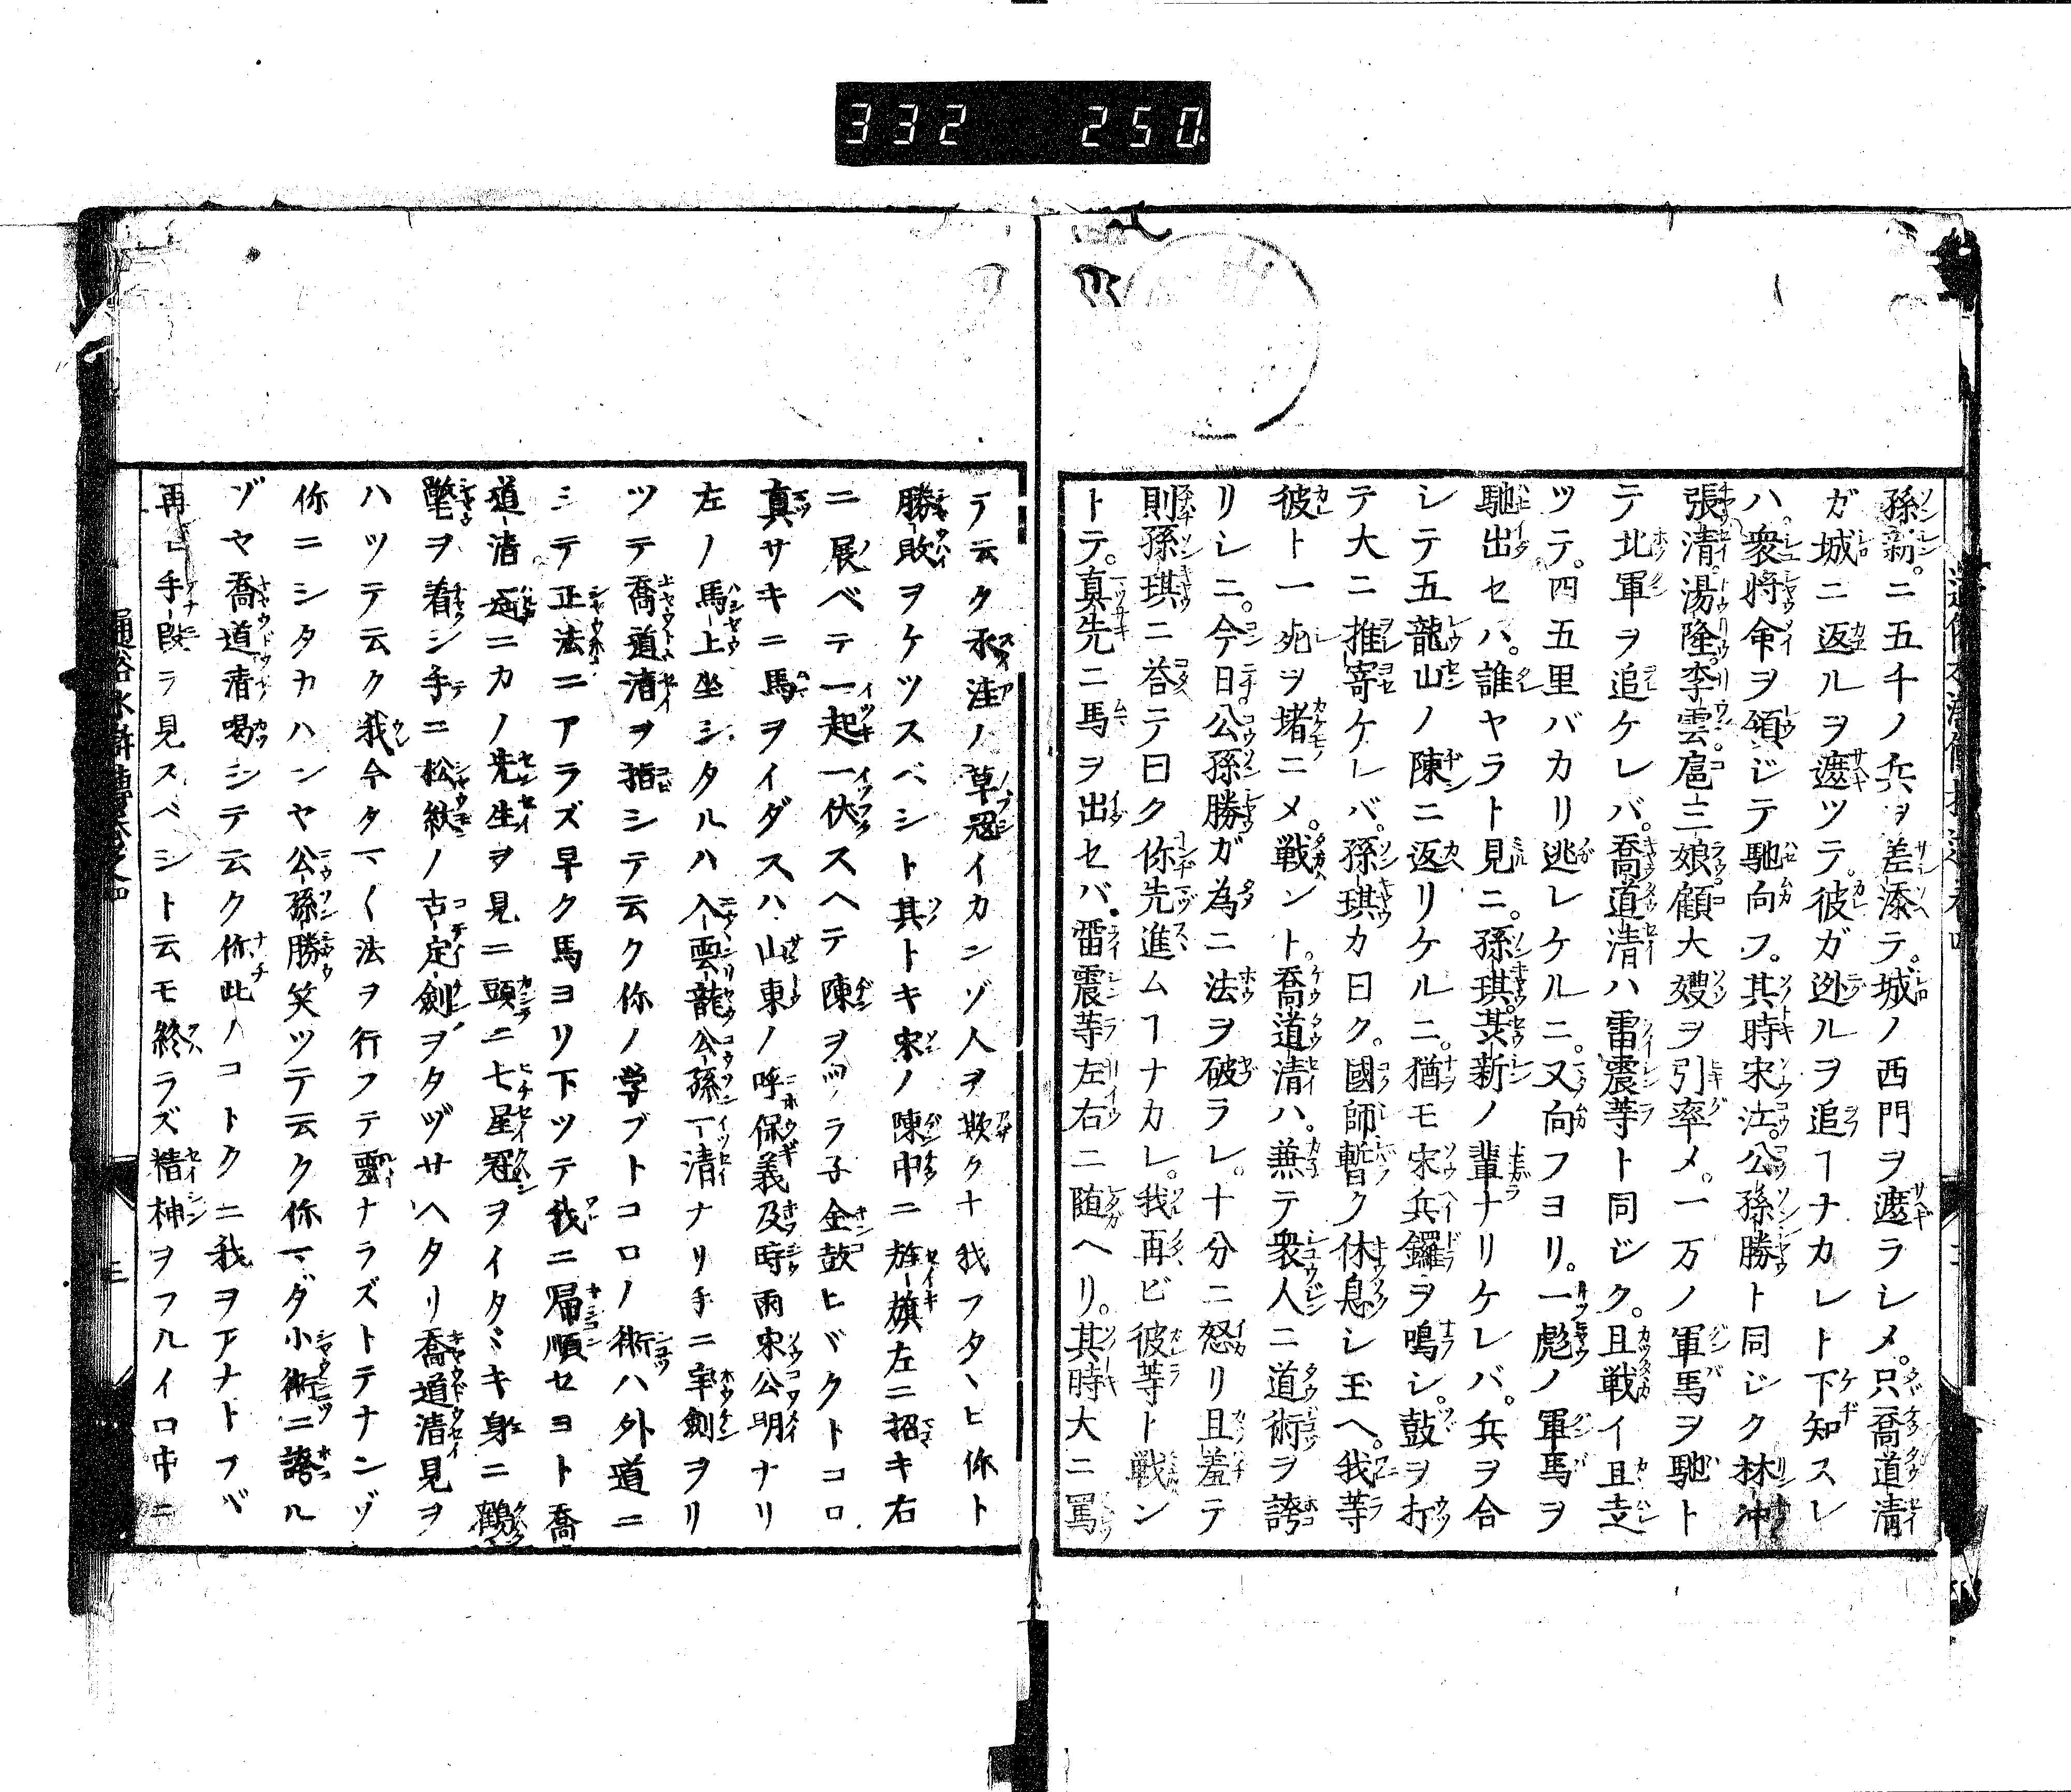 332 250
孫新。ニ五千ノ兵ヲ差添テ。城ノ西門ヲ遮ラシメ。只喬道清
ガ城ニ返ルヲ遮ツテ。彼ガ迯ルヲ追ヿナカレト下知スレ
ハ。衆將命ヲ領シテ馳向フ。其時宋江。公孫勝ト同ジク林冲
張清。湯隆。李雲。扈三娘顧大嫂ヲ引率メ。一万ノ軍馬ヲ馳ト
テ北軍ヲ追ケレバ。喬道清ハ雷震等ト同ジク。且戦イ且走
ツテ。四五里バカリ逃レケルニ。又向フヨリ。一彪ノ軍馬ヲ
馳出セハ。誰ヤラト見ニ。孫琪。聶新ノ輩ナリケレバ。兵ヲ合
シテ五龍山ノ陳ニ返リケルニ。猶モ宋兵鑼ヲ鳴シ。鼓ヲ打
テ大ニ推寄ケレバ。孫琪カ曰ク。國師暫ク休息シ玉ヘ。我等
彼ト一死ヲ堵ニメ。戦ント。喬道清ハ。兼テ衆人ニ道術ヲ誇
リシニ。今日。公孫勝ガ為ニ法ヲ破ラレ。十分ニ怒リ且羞テ
則孫琪ニ荅テ曰ク你先進ムヿナカレ。我再ビ彼等ト戦ン
トテ。真先ニ馬ヲ出セバ。雷震等左右ニ随ヘリ。其時大ニ罵
テ云ク水洼ノ草冦イカンゾ人ヲ欺クナ我フタヽヒ你ト
勝敗ヲケツスベシト其トキ宋ノ陳中ニ旌旗左ニ招キ右
ニ展ベテ一起一伏スヘテ陳ヲツラ子金鼓ヒヾクトコロ
真サキニ馬ヲイダスハ山東ノ呼保義及時雨宋公明ナリ
左ノ馬上坐シタルハ入雲龍公孫一清ナリ手ニ宝劍ヲリ
ツテ喬道清ヲ指シテ云ク你ノ学ブトコロノ術ハ外道ニ
シテ正法ニアラズ早ク馬ヨリ下ツテ我ニ帰順セヨト喬
道清遥ニカノ先生ヲ見ニ頭ニ七星冠ヲイタヾキ身ニ鶴
氅ヲ着シ手ニ松紋ノ古定劍ヲタヅサヘタリ喬道清見ヲ
ハツテ云ク我今タマ〱法ヲ行フテ靈ナラズトテナンゾ
你ニシタカハンヤ公孫勝笑ツテ云ク你マダ小術ニ誇ル
ゾヤ喬道清喝シテ云ク你此ノコトクニ我ヲアナトフバ
再ヒ手段ヲ見スベシト云モ終ラズ精神ヲフルイ口中ニ
通俗水滸傳巻之四
三